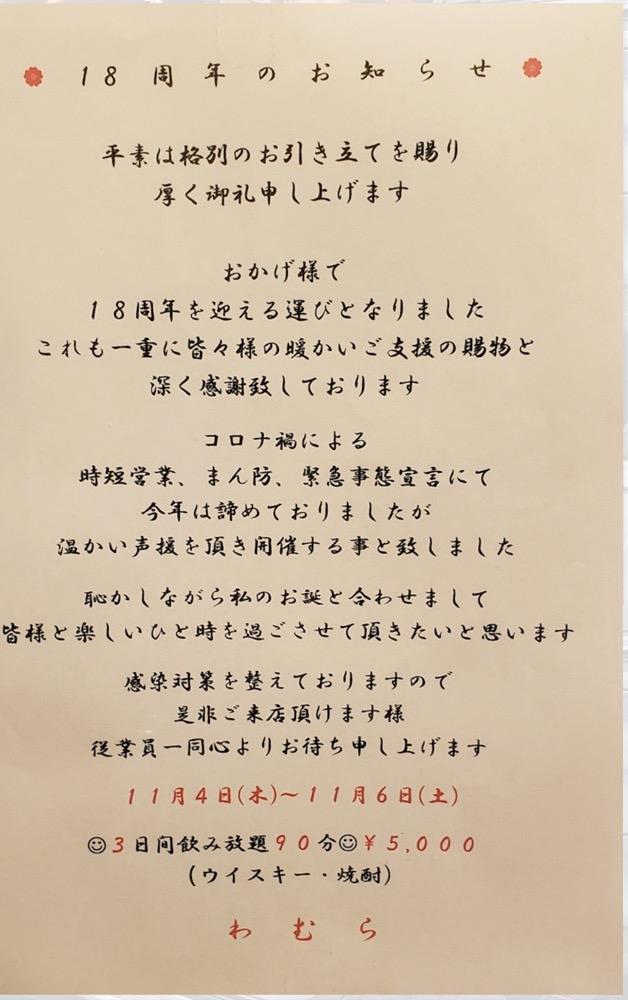 18周年のお知らせ
平素は格別のお引き立てを賜り
厚く御礼申し上げます
おかげ様で
18周年を迎える運びとなりました
これも一重に皆々様の暖かいご支援の賜物と
深く感謝致しております
コロナ禍による
時短営業、まん防、緊急事態宣言にて
今年は諦めておりましたが
温かい声援を頂き開催する事と致しました
恥かしながら私のお誕と合わせまして
皆様と楽しいひと時を過ごさせて頂きたいと思います
感染対策を整えておりますので
是非ご来店頂けます様
従業員一同心よりお待ち申し上げます
11月4日(木)～11月6日(土)
☺3日間飲み放題90分☺¥5,000
(ウイスキー・焼酎)
わむら